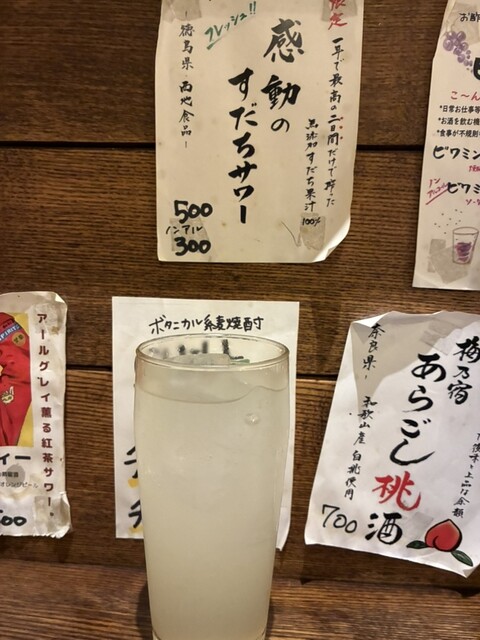 限定
一年で最高の二日間だけで搾った
無添加すだち果汁100%
フレッシュ!!
感動の
すだちサワー
-徳島県・西地食品-
500
ノンアル
300
お酢
こ〜ん
*日常お仕事等
*お酒を飲む機
*食事が不規則
ビワミン
ノンアルコール
ビワミ
アールグレイ薫る紅茶サワー。
ィー
オレンジピール
500
ボタニカル系麦焼酎
梅乃宿
あらごし
桃酒
奈良県-
和歌山産 白桃使用
700